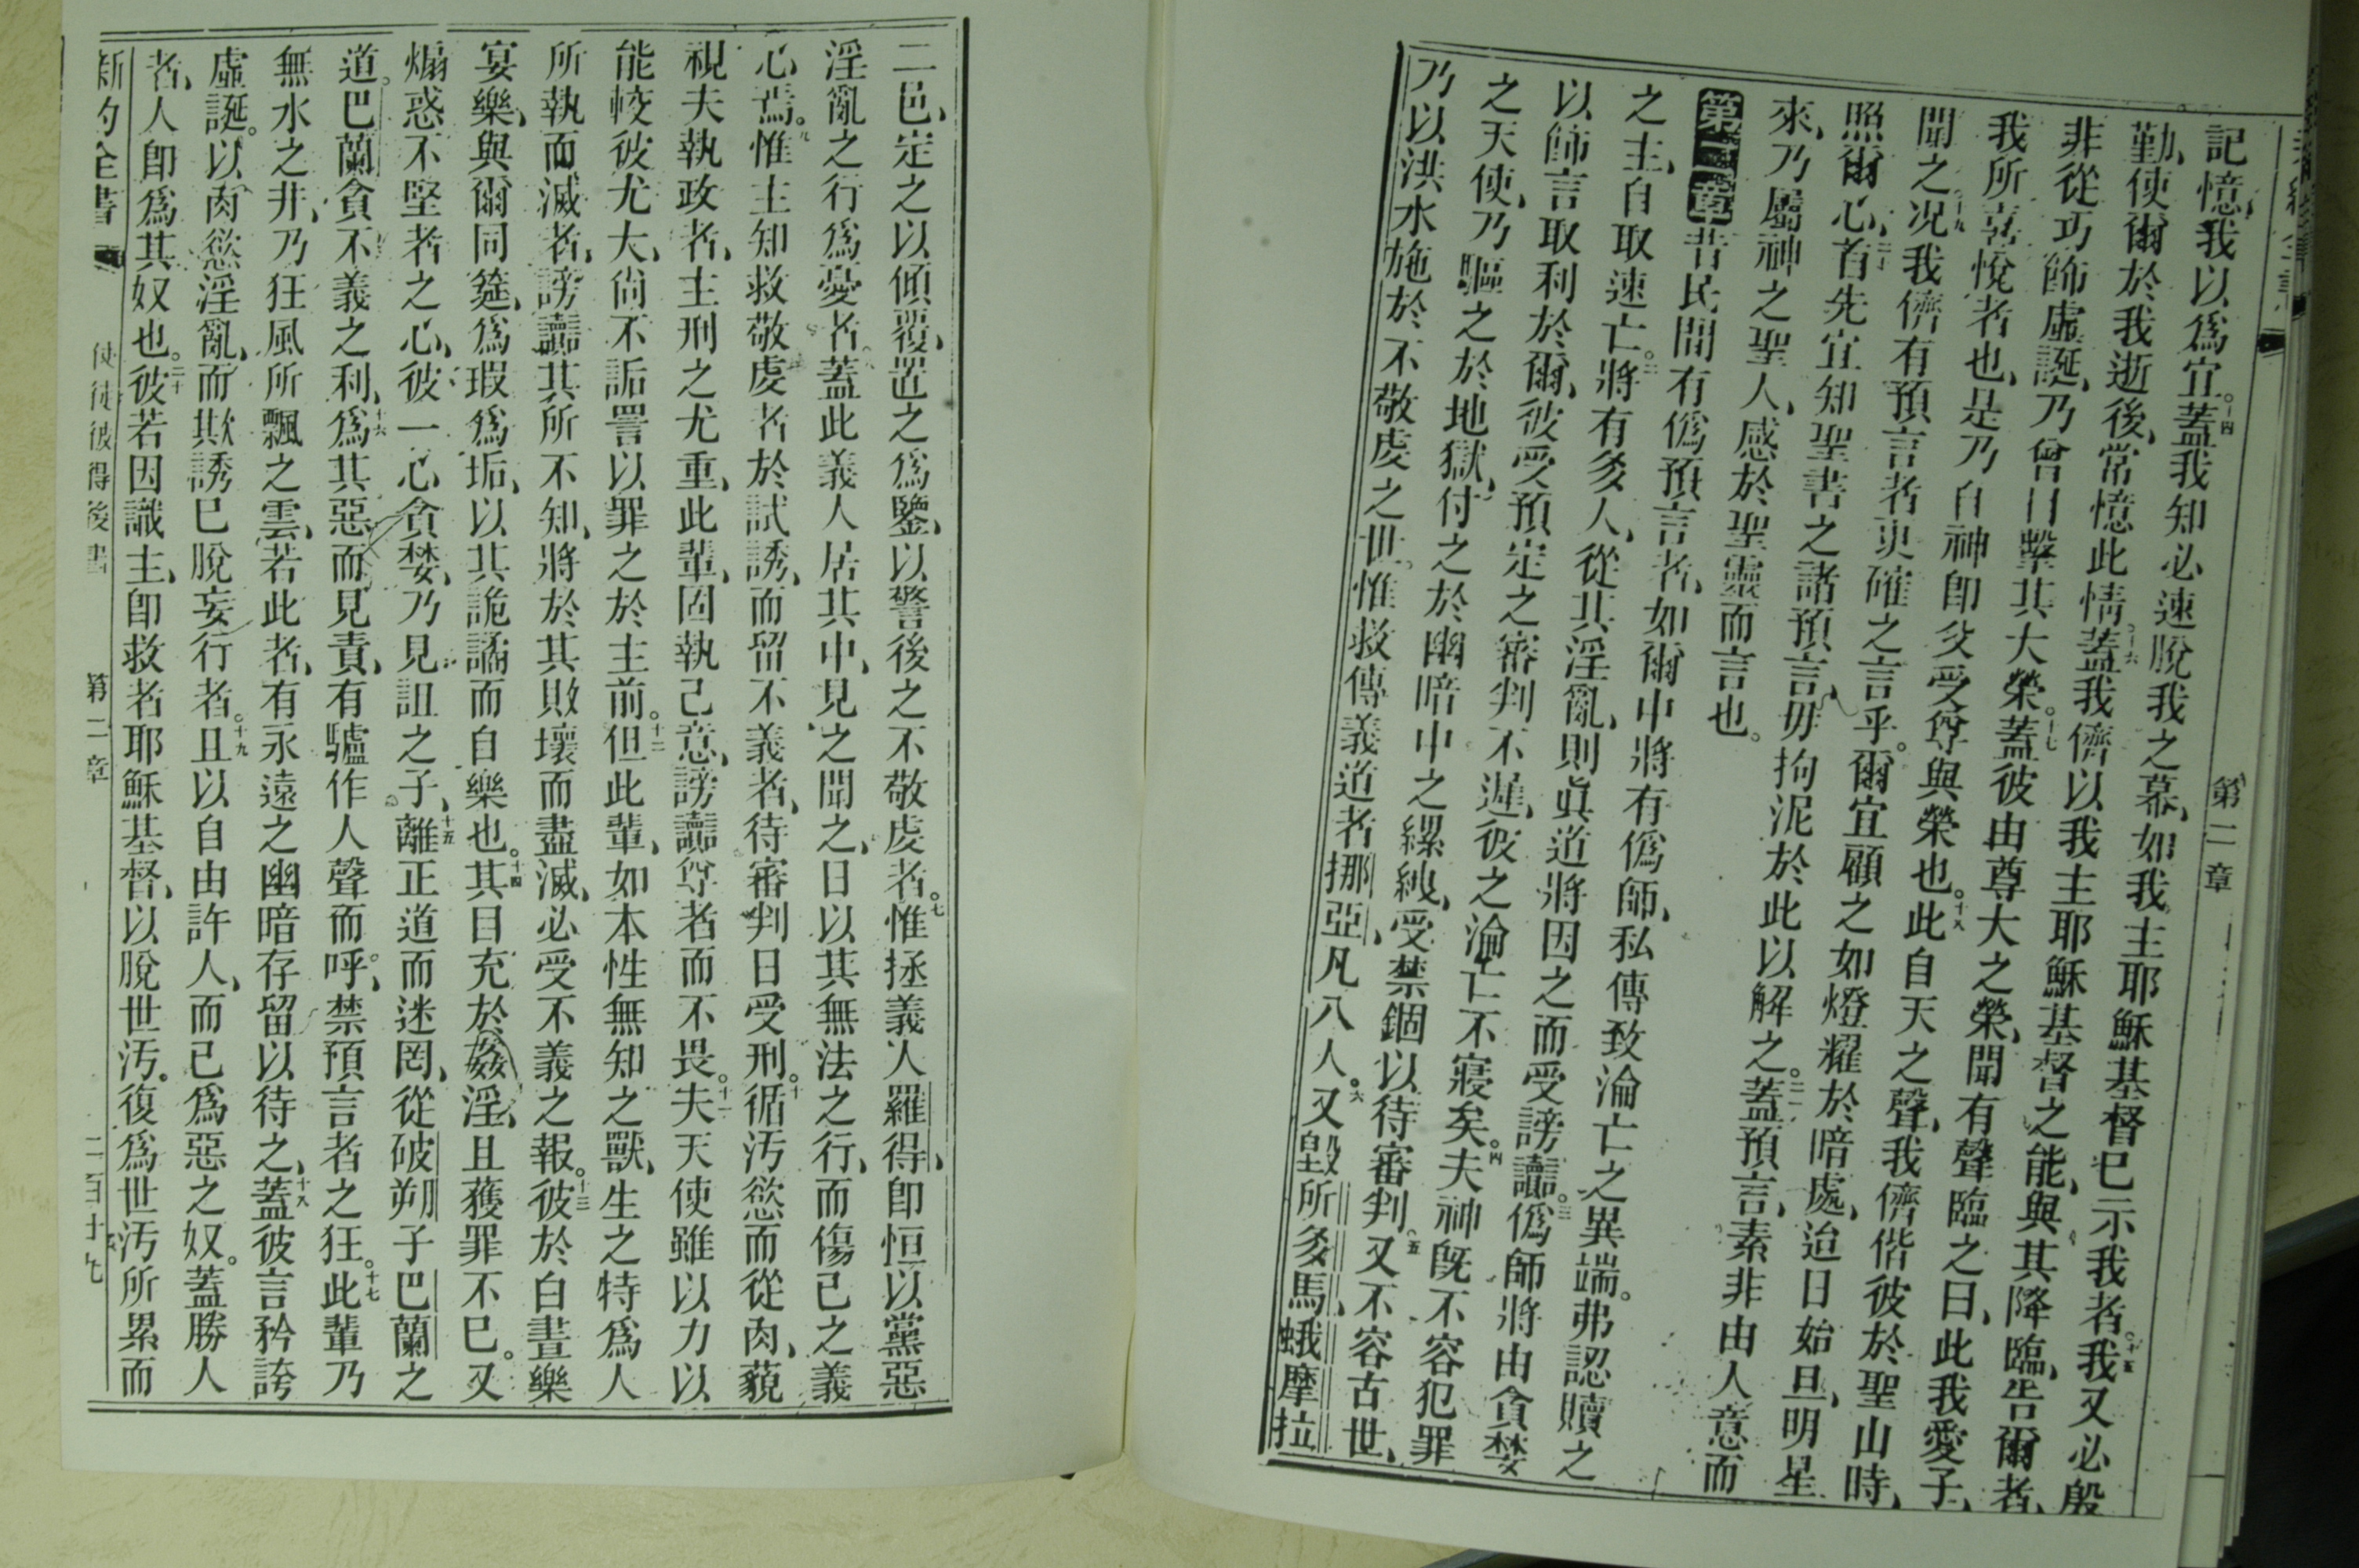 第二章
記憶、我以爲宜。十四蓋我知必速脫我之幕、如我主耶穌基督已示我者。十五我又必殷
勤、使爾於我逝後、常憶此情。十六蓋我儕以我主耶穌基督之能、與其降臨、告爾者、
非從巧飾虛誕、乃曾目擊其大榮。十七蓋彼由尊大之榮、聞有聲臨之曰、此我愛子、
我所喜悅者也、是乃自神卽父受尊與榮也。十八此自天之聲、我儕偕彼於聖山時、
聞之。十九况我儕有預言者更確之言乎。爾宜顧之如燈耀於暗處、迨日始旦、明星
照爾心、二十首先宜知聖書之諸預言毋拘泥於此以解之。二一蓋預言、素非由人意而
來、乃屬神之聖人、感於聖靈而言也。
第二章昔民間有僞預言者、如爾中將有僞師、私傳致淪亡之異端。弗認贖之
之主、自取速亡。二將有多人、從其淫亂、則眞道將因之而受謗讟。三僞師將由貪婪
以飾言取利於爾、彼受預定之審判不遲、彼之淪亡不寢矣。四夫神旣不容犯罪
之天使、乃驅之於地獄、付之於幽暗中之縲絏、受禁錮以待審判。五又不容古世、
乃以洪水施於不敬虔之世。惟救傳義道者挪亞、凡八人。六又毀所多馬、蛾摩拉
二邑、定之以傾覆、置之爲鑒、以警後之不敬虔者。七惟拯義人羅得、卽恒以黨惡
淫亂之行爲憂者。八蓋此義人居其中、見之聞之、日以其無法之行、而傷己之義
心焉。九惟主知救敬虔者於試誘、而留不義者、待審判日受刑。十循汚慾而從肉、藐
視夫執政者、主刑之尤重、此輩、固執己意、謗讟尊者而不畏。十一夫天使雖以力以
能較彼尤大、尙不詬詈以罪之於主前。十二但此輩、如本性無知之獸、生之特爲人
所執而滅者、謗讟其所不知、將於其敗壞而盡滅、必受不義之報。十三彼於白晝樂
宴樂、與爾同筵、爲瑕爲垢、以其詭譎而自樂也。十四其目充於姦淫、且獲罪不已。又
煽惑不堅者之心、彼一心貪婪、乃見詛之子、十五離正道而迷罔、從破朔子巴蘭之
道。巴蘭貪不義之利、十六爲其惡而見責、有驢作人聲而呼。禁預言者之狂。十七此輩乃
無水之井、乃狂風所飄之雲、若此者、有永遠之幽暗存留以待之、十八蓋彼言矜誇
虛誕。以肉慾淫亂、而欺誘已脫妄行者。十九且以自由許人、而己爲惡之奴。蓋勝人
者、人卽爲其奴也。二十彼若因識主、卽救者耶穌基督、以脫世汚。復爲世汚所累而
新約全書 使徒彼得後書 第二章 二百廿九